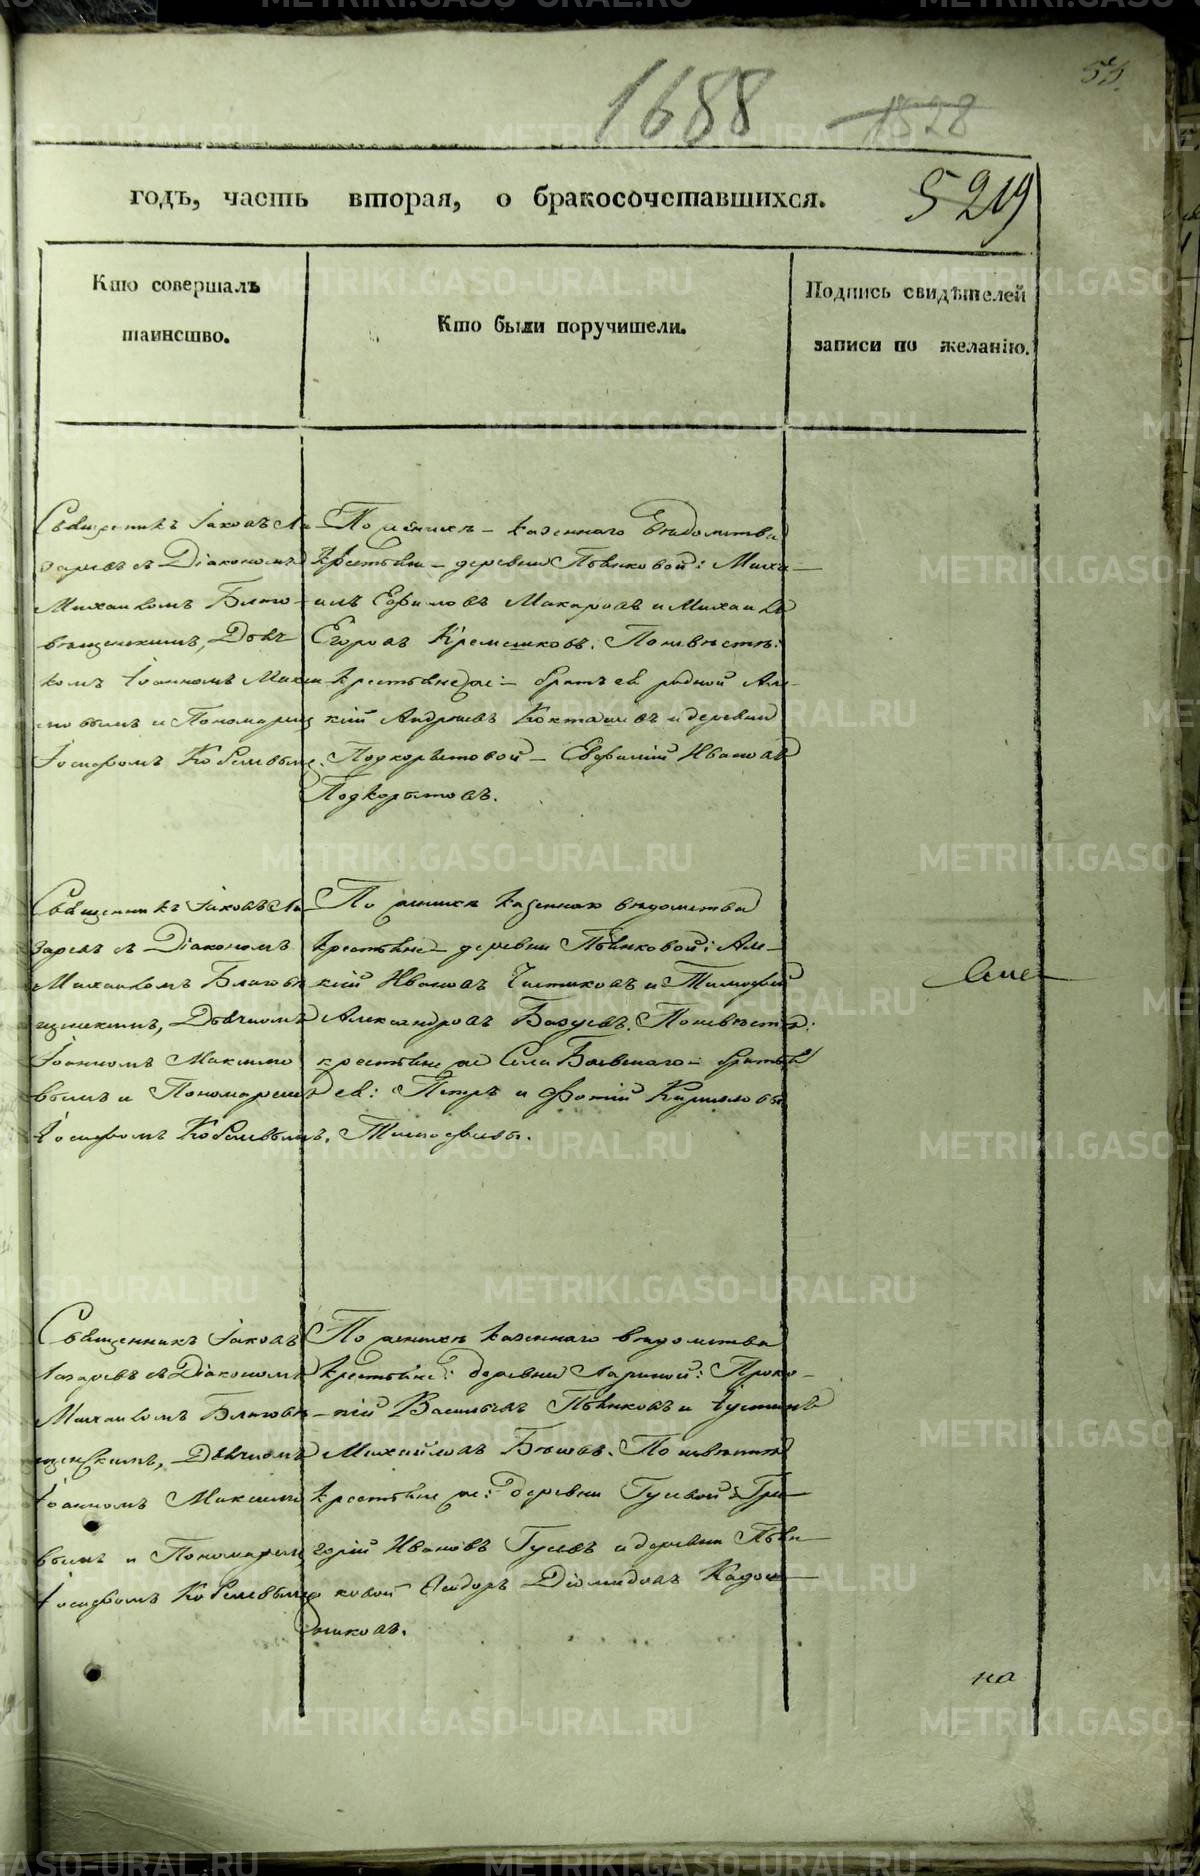 1688 1828
53.
годъ, часть вторая, о бракосочетавшихся.
5219
Кто совершалъ
таинство.
Кто были поручители.
Подпись свидѣтелей
записи по желанію.
Священникъ Іаковъ Ла-
заревъ съ Діакономъ
Михаиломъ Благо-
вѣщенскимъ, Дьяч
комъ Іоанномъ Макси
мовымъ и Пономаремъ
Іосифомъ Кобелевымъ.
По женихѣ – казеннаго вѣдомства
крестьяне – деревни Пьянковой: Миха-
илъ Ефимовъ Макаровъ и Михаилъ
Егоровъ Кремешковъ. По невѣстѣ:
крестьяне же – братъ ея родной Але-
ксій Андреевъ Кокташевъ и деревни
Подкорытовой – Евфимій Ивановъ
Подкорытовъ.
Священникъ Іаковъ Ла-
заревъ съ Діакономъ
Михаиломъ Благовѣ
щенскимъ, Дьячкомъ
Іоанномъ Максимо
вымъ и Пономаремъ
Іосифомъ Кобелевымъ.
По женихѣ казеннаго вѣдомства
крестьяне – деревни Пьянковой: Але-
ксій Ивановъ Чистяковъ и Тимофей
Александровъ Базуевъ. По невѣстѣ:
крестьяне же Села Баевскаго – братья
ея: Петръ и Фотій Кирилловы
Тимофеевы.
Священникъ Іаковъ
Лазаревъ съ Діакономъ
Михаиломъ Благовѣ
щенскимъ, Дьячкомъ
Іоанномъ Максимо
вымъ и Пономаремъ
Іосифомъ Кобелевымъ
По женихѣ казеннаго вѣдомства
крестьяне: деревни Лариной: Проко-
пій Васильевъ Пьянковъ и Іустинъ
Михайловъ Бѣловъ. По невѣстѣ
крестьяне же: деревни Гусевой Гри-
горій Ивановъ Гусевъ и деревни Пьян-
ковой Исидоръ Діомидовъ Кадош-
никовъ.
на
METRIKI.GASO-URAL.RU